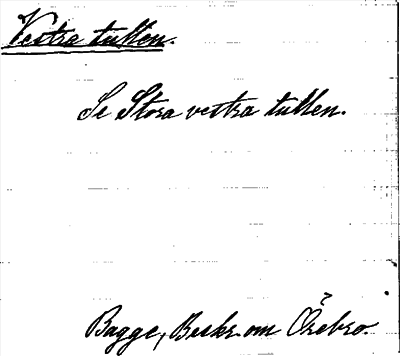 Vestra tullen.
Se Stora vestra tullen.
Bagge, Beskr. om Örebro.